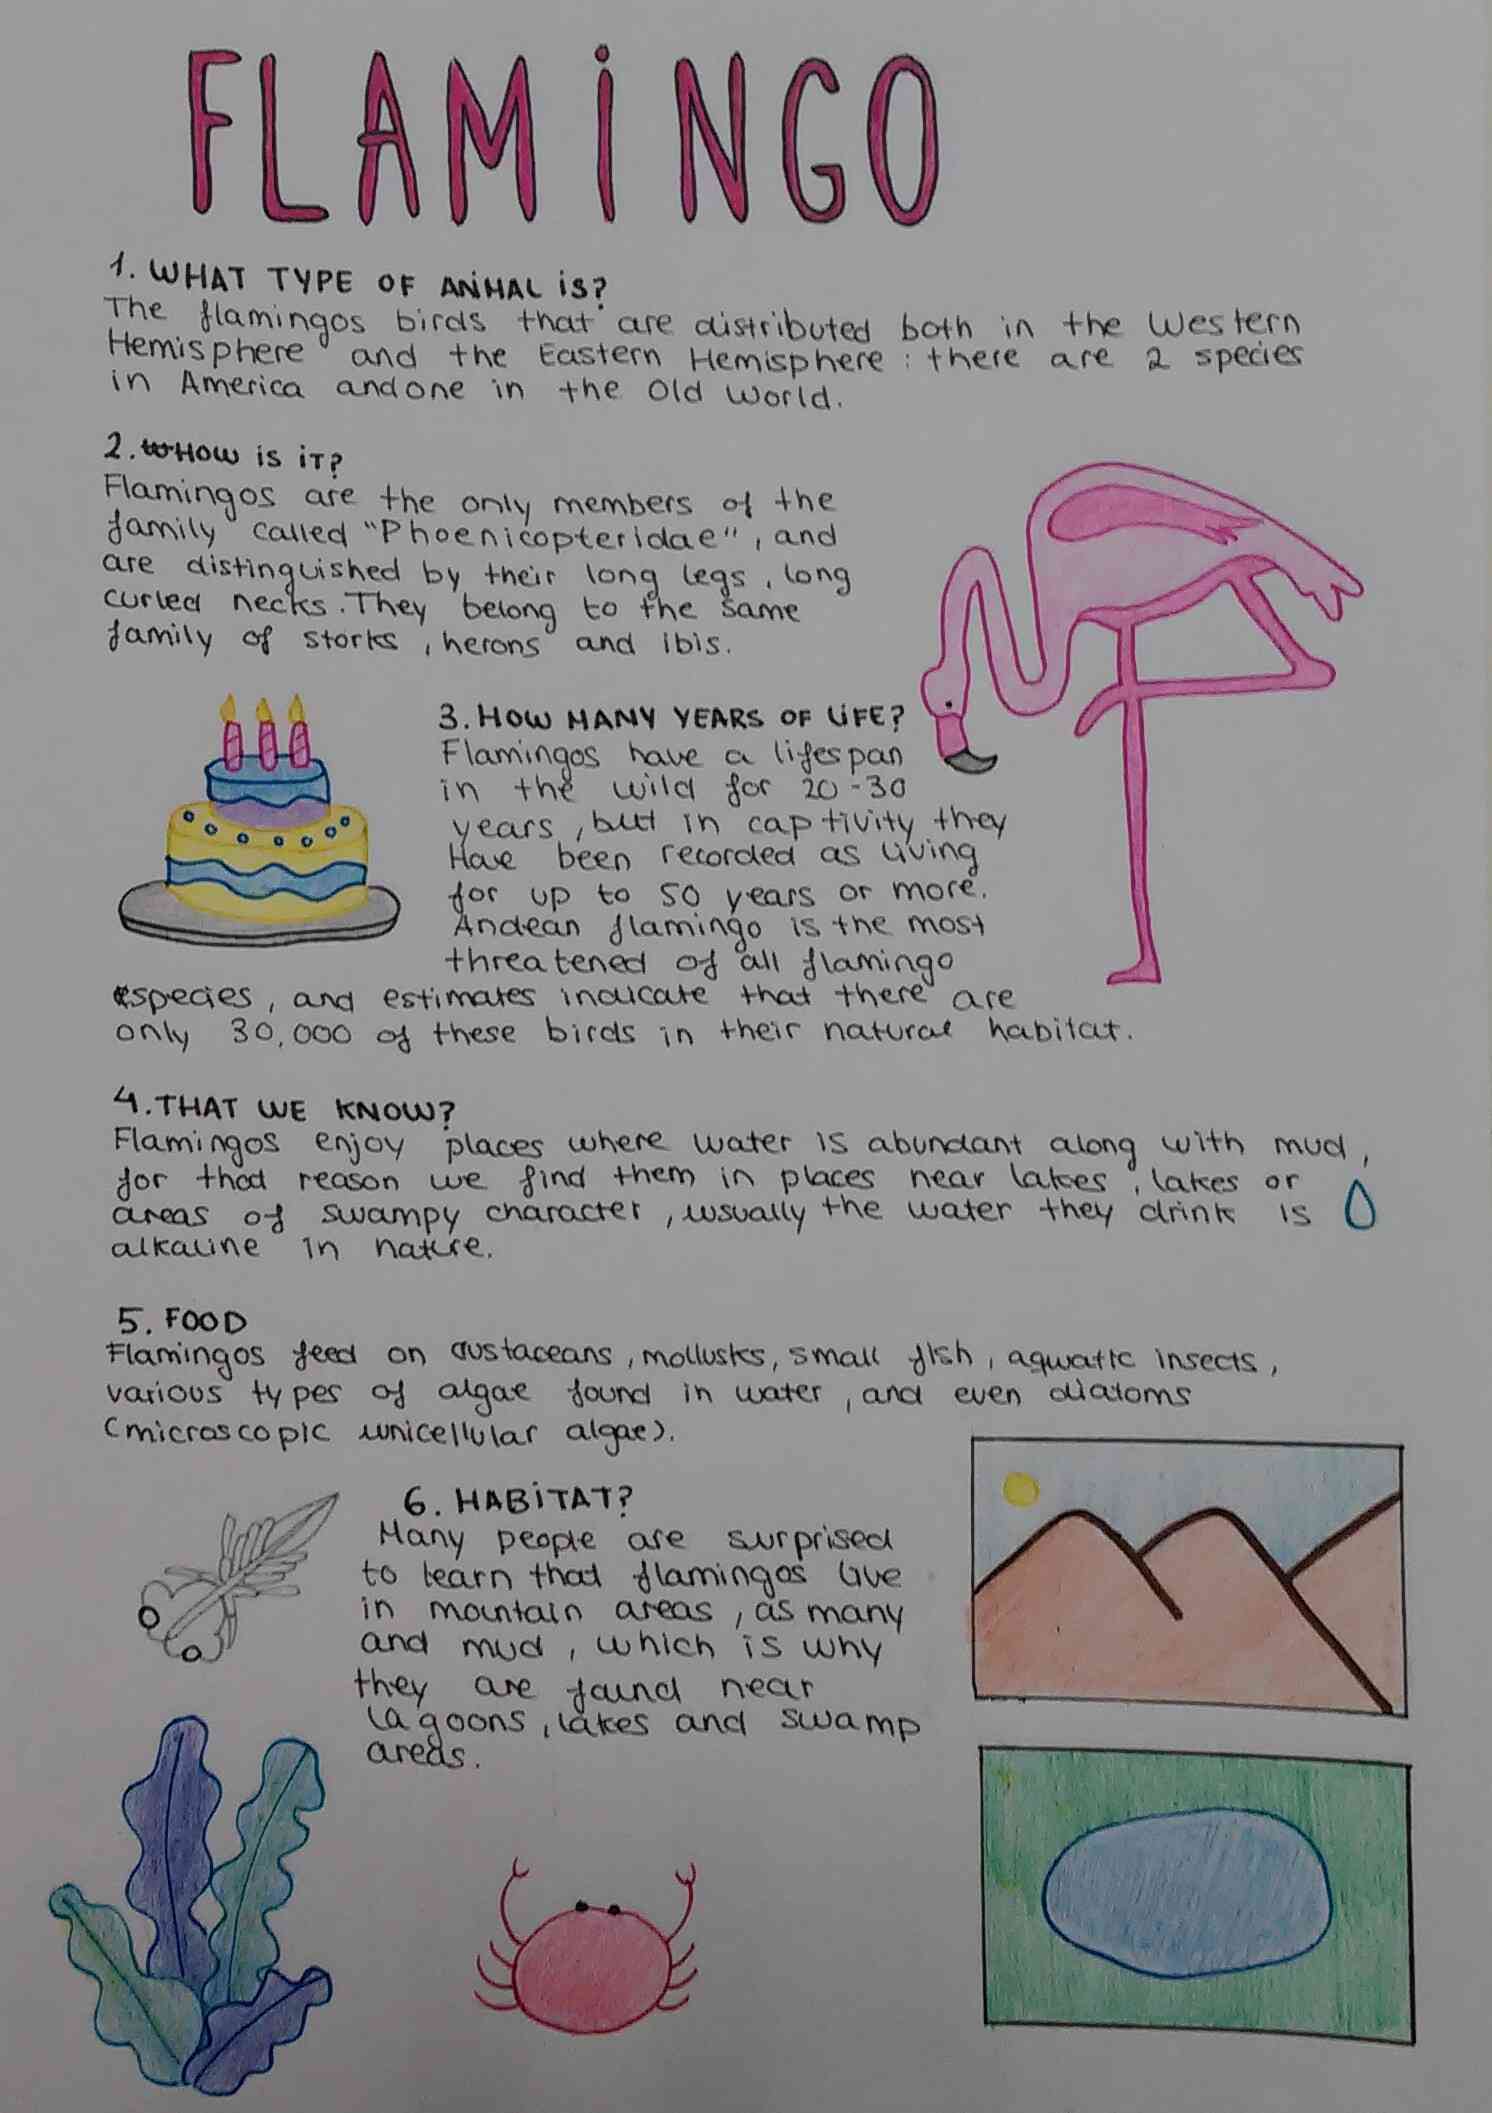 FLAMiNGO
1. WHAT TYPE OF ANiMAL iS?
The flamingos birds that are distributed both in the Western
Hemisphere and the Eastern Hemisphere: there are 2 species
in America andone in the Old World.
2. HOW iS iT?
Flamingos are the only members of the
family called "Phoenicopteridae", and
are distinguished by their long legs, long
curled necks. They belong to the same
family of storks, herons and ibis.
3. HOW MANY YEARS OF LiFE?
Flamingos have a lifespan
in the wild for 20-30
years, but in captivity they
Have been recorded as living
for up to 50 years or more.
Andean flamingo is the most
threatened of all flamingo
species, and estimates indicate that there are
only 30,000 of these birds in their natural habitat.
4. THAT WE KNOW?
Flamingos enjoy places where water is abundant along with mud,
for that reason we find them in places near lakes, lakes or
areas of swampy character, usually the water they drink is
alkaline in nature.
5. FOOD
Flamingos feed on crustaceans, mollusks, small fish, aquatic insects,
various types of algae found in water, and even diatoms
(microscopic unicellular algae).
6. HABiTAT?
Many people are surprised
to learn that flamingos live
in mountain areas, as many
and mud, which is why
they are found near
lagoons, lakes and swamp
areas.